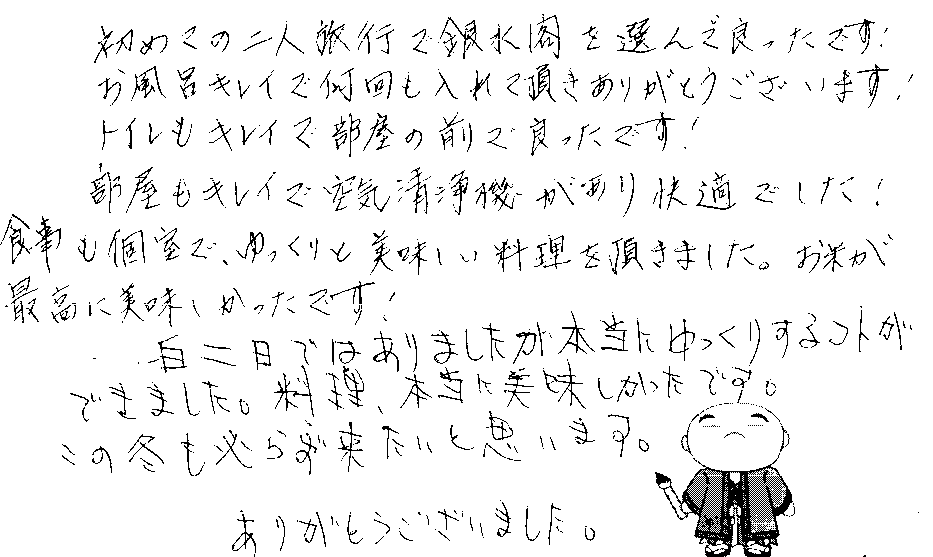 初めての二人旅行で銀水閣を選んで良ったです!
お風呂キレイで何回も入れて頂きありがとうございます!
トイレもキレイで部屋の前で良ったです!
部屋もキレイで空気清浄機があり快適でした!
食事も個室で、ゆっくりと美味しい料理を頂きました。お米が
最高に美味しかったです!
一白二日ではありましたが本当にゆっくりするコトが
できました。料理、本当に美味しかったです。
この冬も必らず来たいと思います。
ありがとうございました。